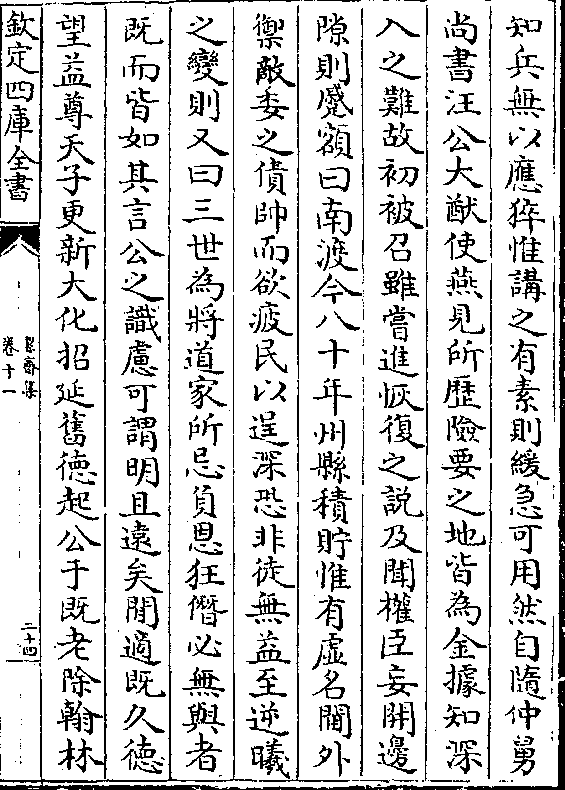 知兵無以應猝惟講之有素則緩急可用然自隨仲舅
尚書汪公大猷使燕見所歷險要之地皆為金據知深
入之難故初被召雖嘗進恢復之説及聞權臣妄開邊
隙則蹙額曰南渡今八十年州縣積貯惟有虚名閫外
禦敵委之債帥而欲疲民以逞深恐非徒無益至逆曦
之變則又曰三世為將道家所忌負恩狂僭必無與者
既而皆如其言公之識慮可謂明且遠矣閒適既久德
望益尊天子更新大化招延舊徳起公于既老除翰林
欽定四庫全書
絜齋集
卷十一
二十四